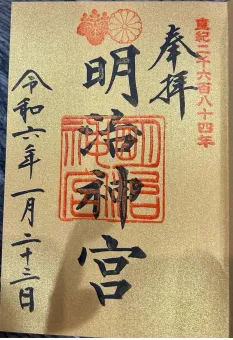 皇紀二千六百八十四年
奉拝
明治神宮
令和六年一月二十三日